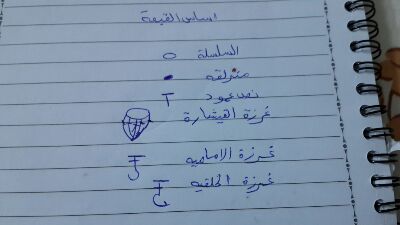 اساس القبعة
السلسلة
منزلقه
نصف عمود
غرزة القيثارة
غرزة الامامية
غرزة الخلفية